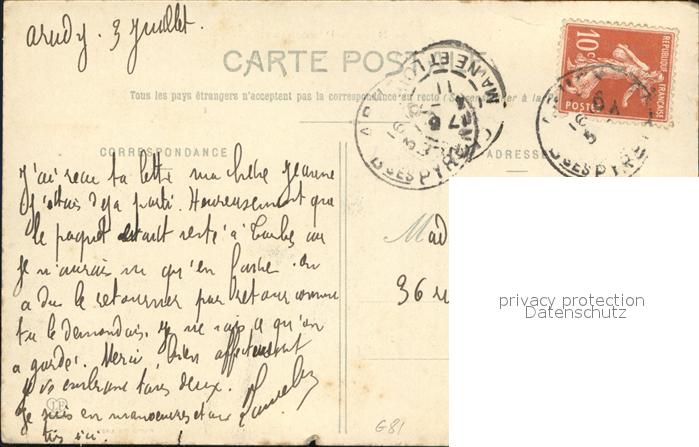 arudy. 3 Juillet.
CARTE POSTALE
Tous les pays étrangers n'acceptent pas la correspondance au recto (Se renseigner à la
CORRESPONDANCE
ADRESSE
RÉPUBLIQUE FRANÇAISE
10c
POSTES
MAINE ET LOIRE
ARUDY
BSES PYRÉNÉES
J'ai reçu ta lettre ma chère Jeanne
j'étais déja parti. Heureusement que
le paquet était resté à Tarbes car
je n'aurais qu'en
a du le retourner par retour comme
tu le demandais. Je ne sais ce qu'on
a gardé. Merci, bien affectueusement
je vs embrasse tous deux.
Je suis en manoeuvres
ici.
Mad
36 r
G81
privacy protection
Datenschutz